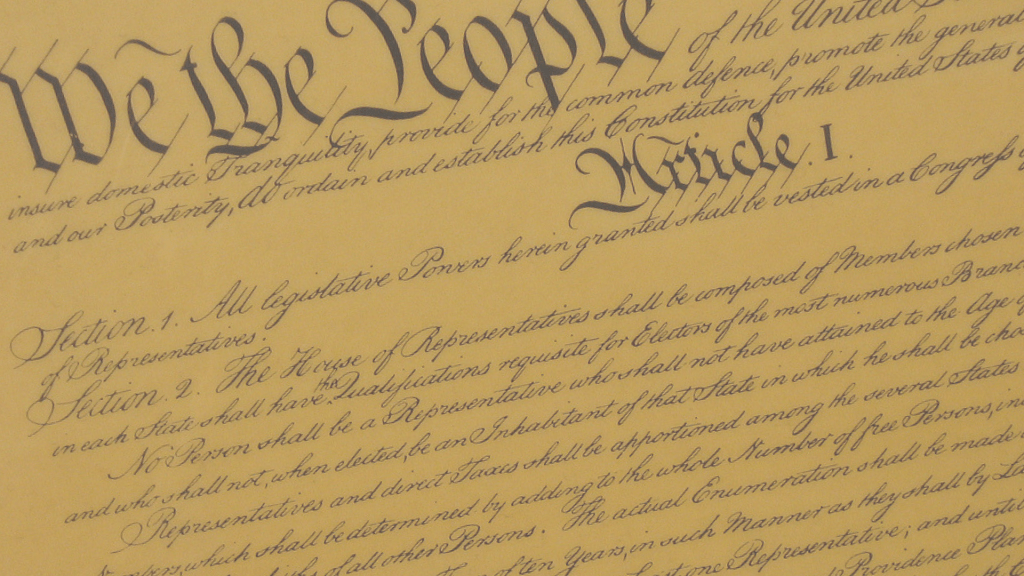 We the People of the United
insure domestic Tranquility, provide for the common defence, promote the general
and our Posterity, do ordain and establish this Constitution for the United States of
Article. I.
Section. 1. All legislative Powers herein granted shall be vested in a Congress
of Representatives.
Section. 2. The House of Representatives shall be composed of Members chosen
in each State shall have the Qualifications requisite for Electors of the most numerous Branc
No Person shall be a Representative who shall not have attained to the Age of
and who shall not, when elected, be an Inhabitant of that State in which he shall be cho
Representatives and direct Taxes shall be apportioned among the several States
which shall be determined by adding to the whole Number of free Persons, in
of all other Persons. The actual Enumeration shall be made
of ten Years, in such Manner as they shall by La
one Representative; and until
Providence Plan